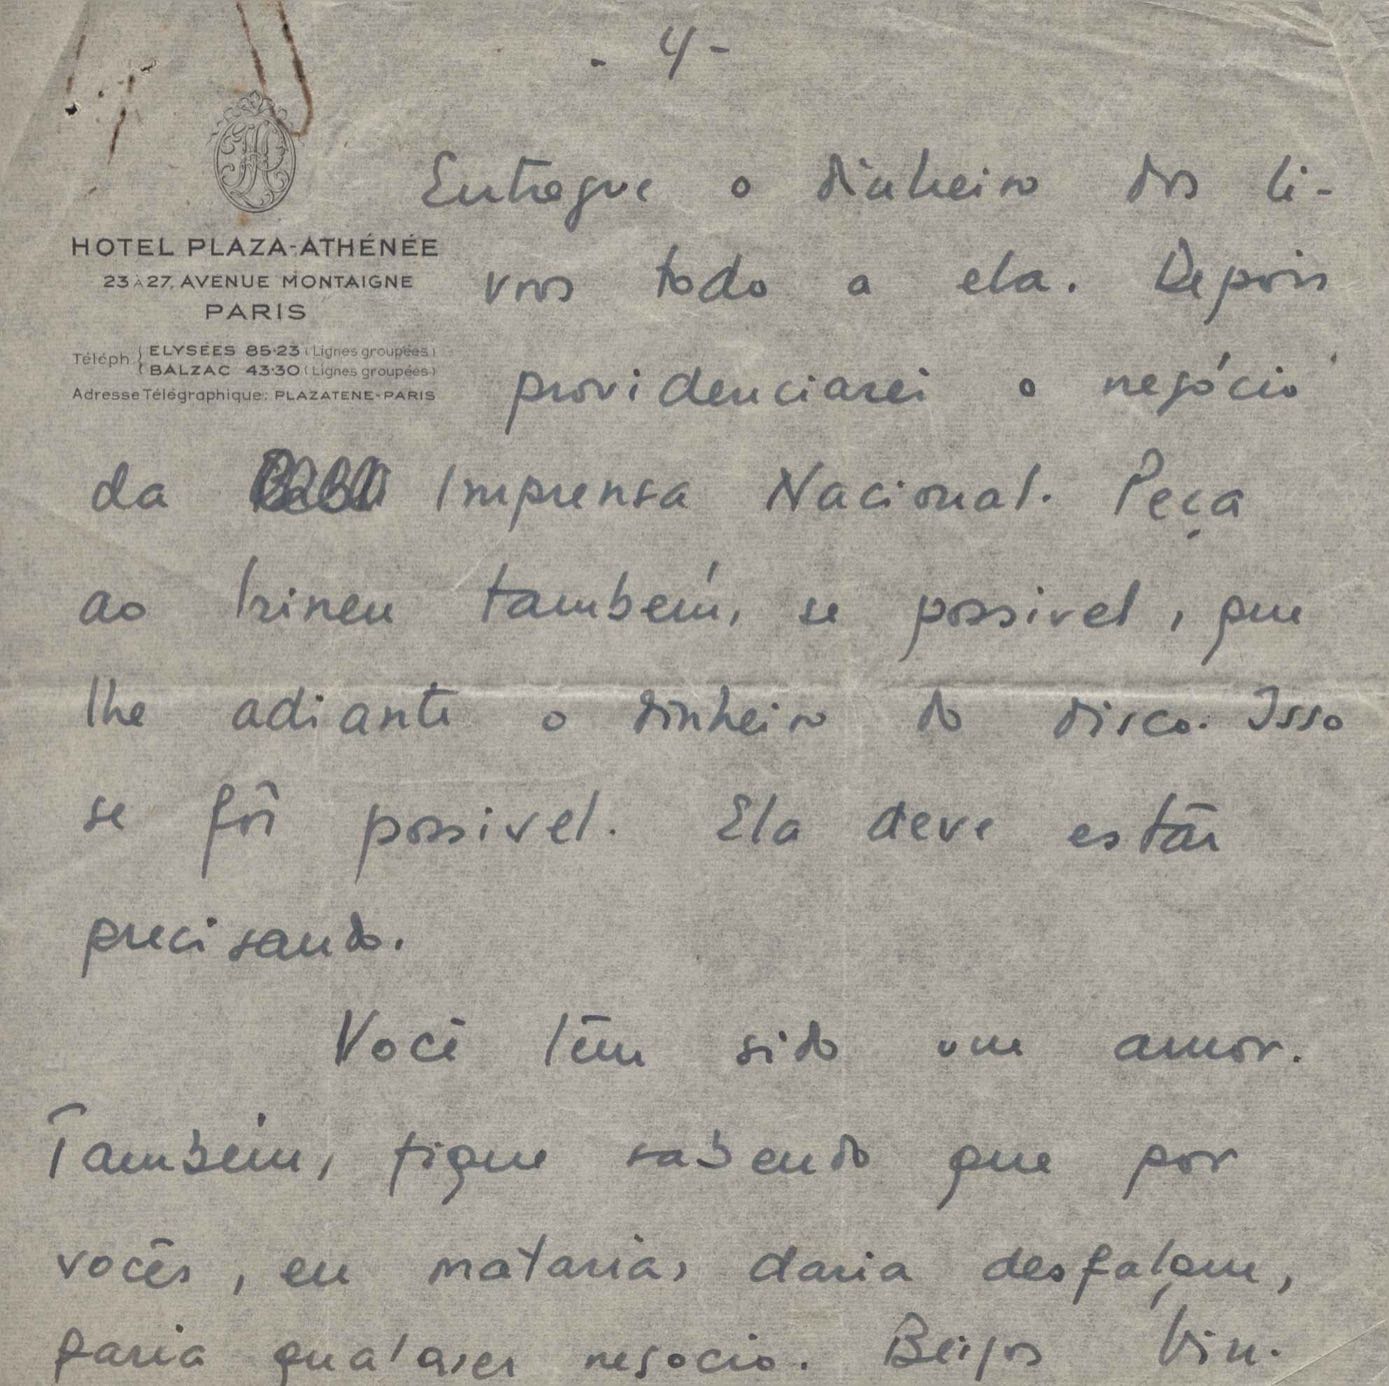 - 4 -
HOTEL PLAZA-ATHÉNÉE
23 À 27, AVENUE MONTAIGNE
PARIS
Téléph. { ELYSÉES 85-23 (Lignes groupées)
{ BALZAC 43-30 (Lignes groupées)
Adresse Télégraphique: PLAZATENE-PARIS
Entregue o dinheiro dos li-
vros todo a ela. Depois
providenciarei o negócio
da Imprensa Nacional. Peça
ao Irineu também, se possivel, que
lhe adiante o dinheiro do disco. Isso
se fôr possivel. Ela deve estár
precisando.
Você têm sido um amor.
Também, fique sabendo que por
vocês, eu mataria, daria desfalque,
faria qualquer negocio. Beijos Vin.